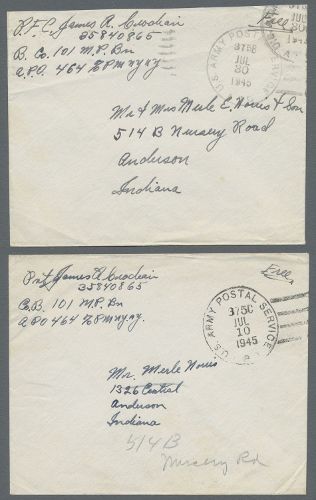 P.F.C. James R.
35840865
B. Co. 101 M.P. Bn
A.P.O. 464 % P.M. N.Y. N.Y.
Free
U.S. ARMY POSTAL SERVICE
JUL
30
1945
Mr & Mrs Merle E. Norris & Son
514 B Nursery Road
Anderson
Indiana
Pvt James R
35840865
Co. B. 101 M.P. Bn
APO 464 % PM N.Y. N.Y.
Free
U.S. ARMY POSTAL SERVICE
JUL
10
1945
Mr. Merle Norris
1326 Central
Anderson
Indiana
514 B
Nursery Rd